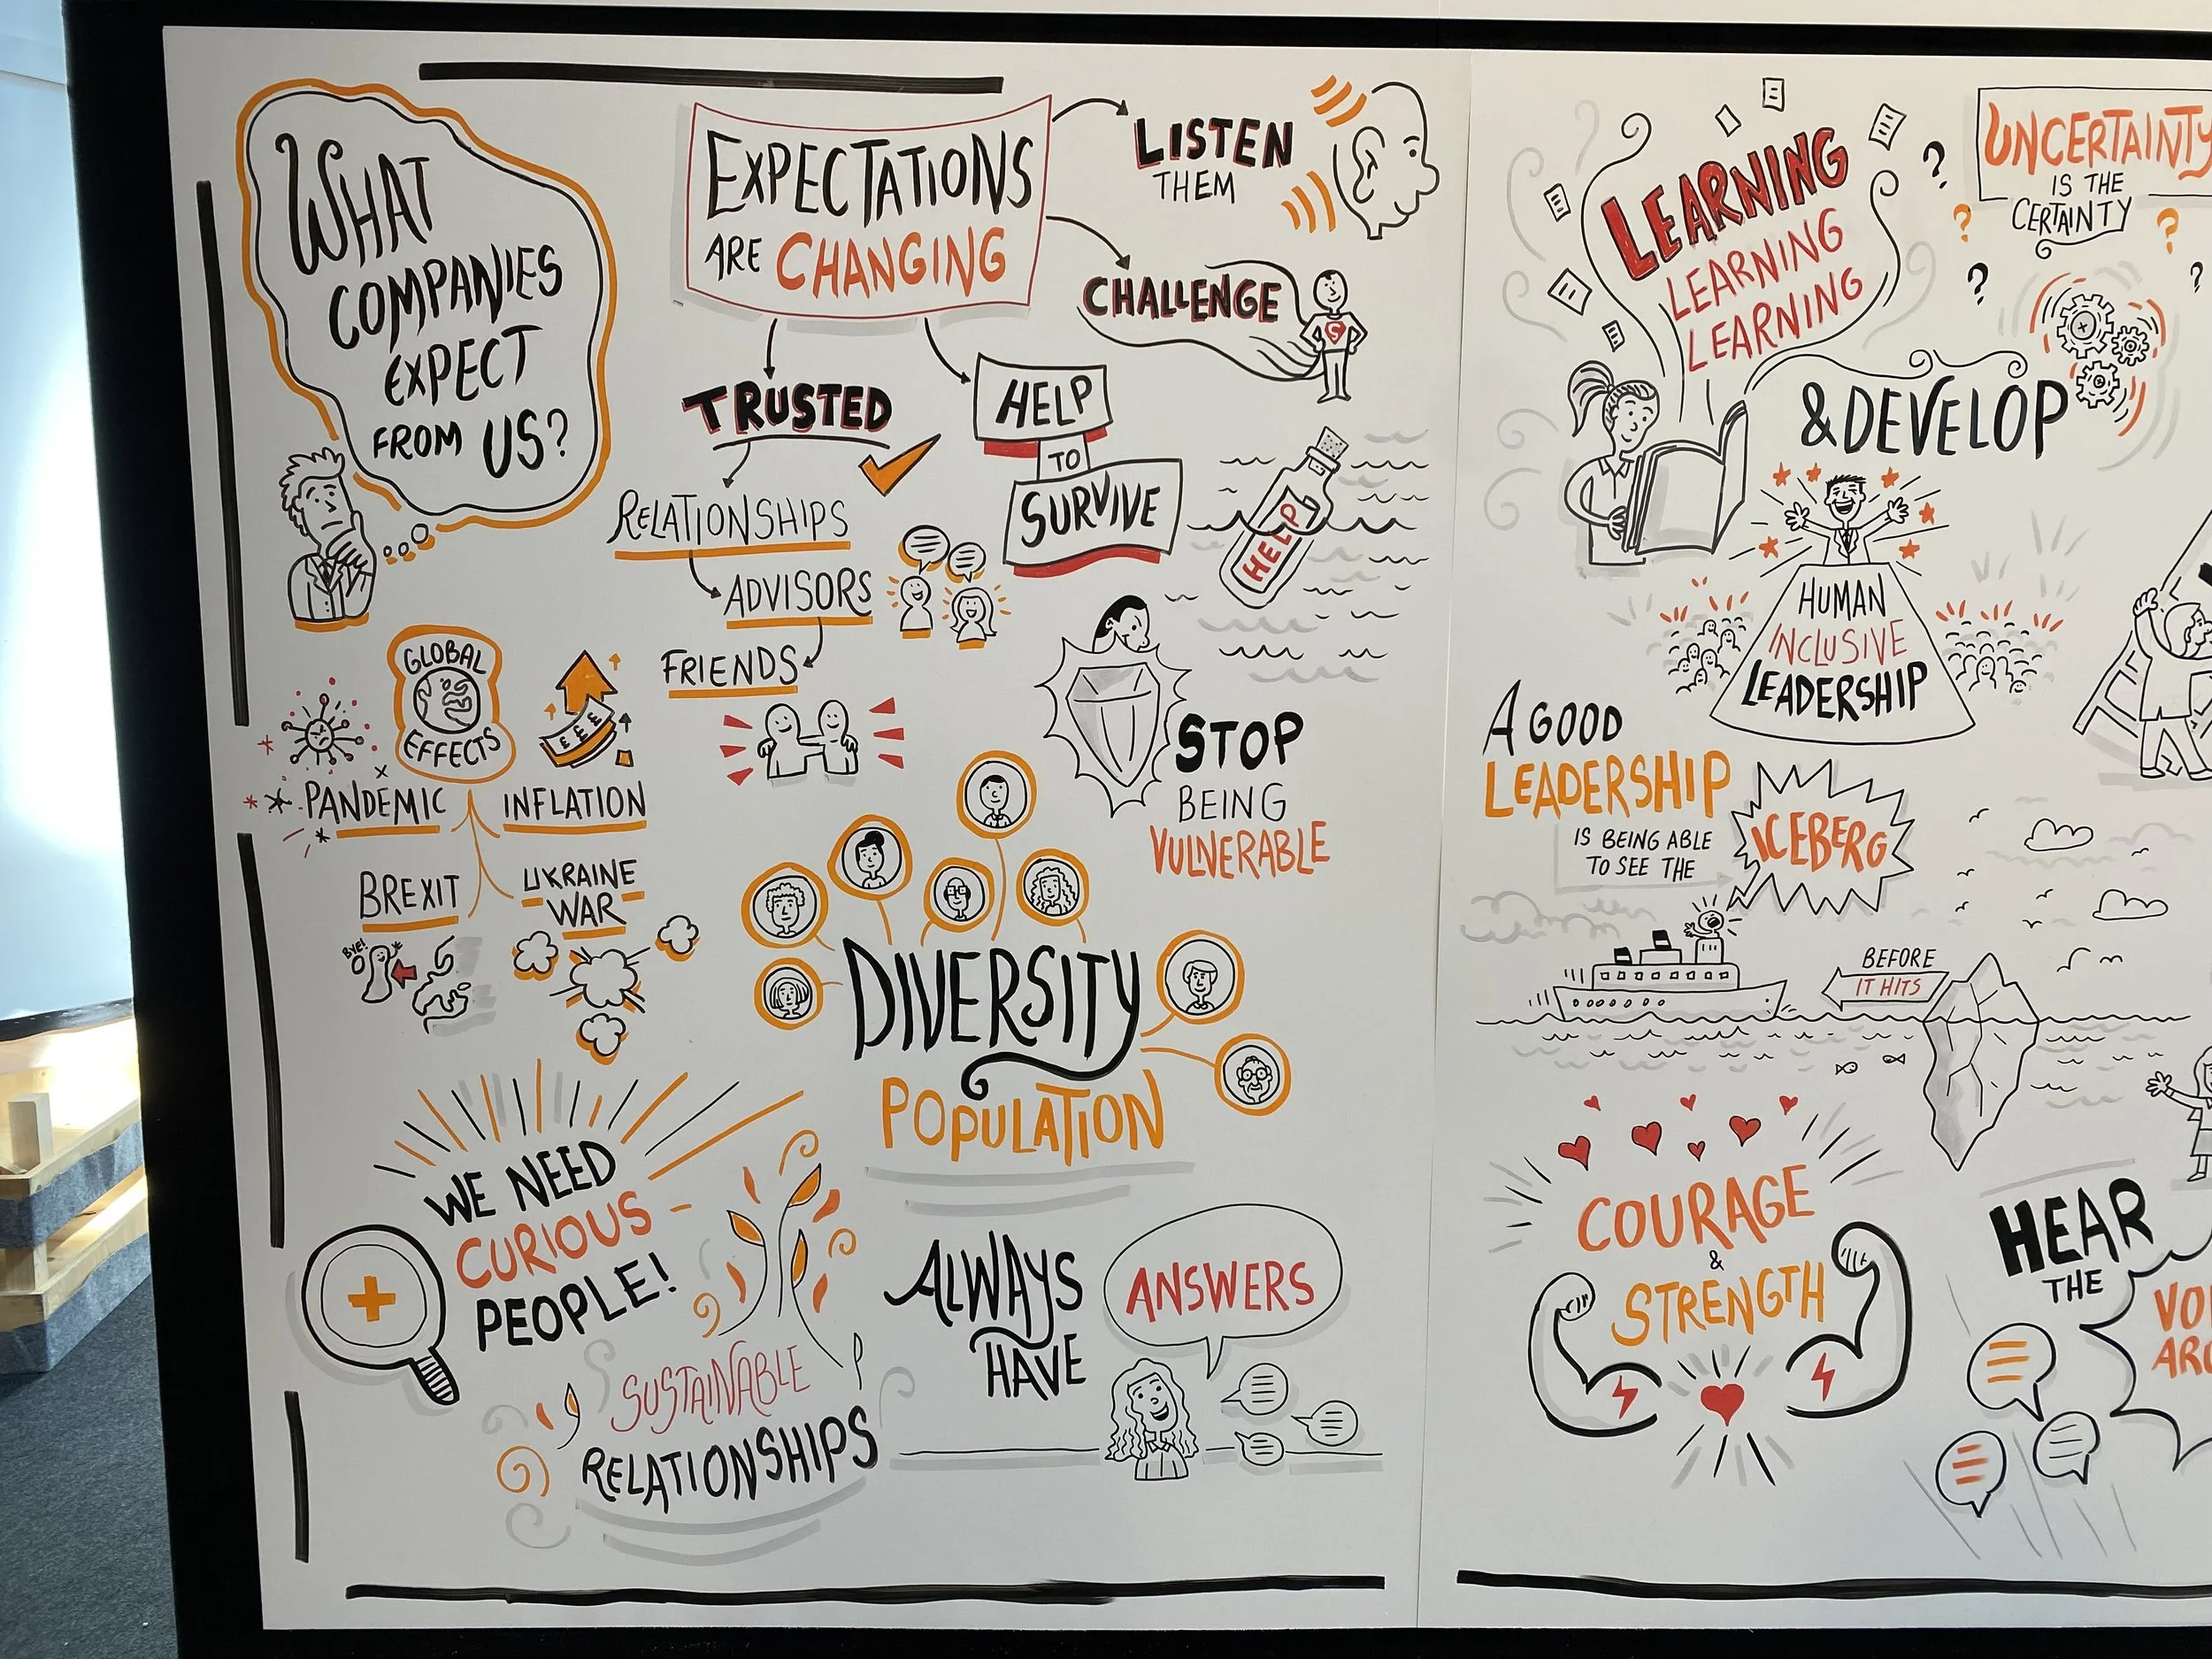 WHAT
COMPANIES
EXPECT
FROM US?
EXPECTATIONS
ARE CHANGING
LISTEN
THEM
CHALLENGE
S
TRUSTED
RELATIONSHIPS
ADVISORS
FRIENDS
HELP
TO
SURVIVE
HELP
STOP
BEING
VULNERABLE
GLOBAL
EFFECTS
PANDEMIC
INFLATION
£ £ £
BREXIT
BYE!
UKRAINE
WAR
DIVERSITY
POPULATION
WE NEED
CURIOUS
PEOPLE!
SUSTAINABLE
RELATIONSHIPS
ALWAYS
HAVE
ANSWERS
LEARNING
LEARNING
LEARNING
& DEVELOP
UNCERTAINTY
IS THE
CERTAINTY
? ? ? ? ?
HUMAN
INCLUSIVE
LEADERSHIP
A GOOD
LEADERSHIP
IS BEING ABLE
TO SEE THE
ICEBERG
BEFORE
IT HITS
COURAGE
&
STRENGTH
HEAR
THE